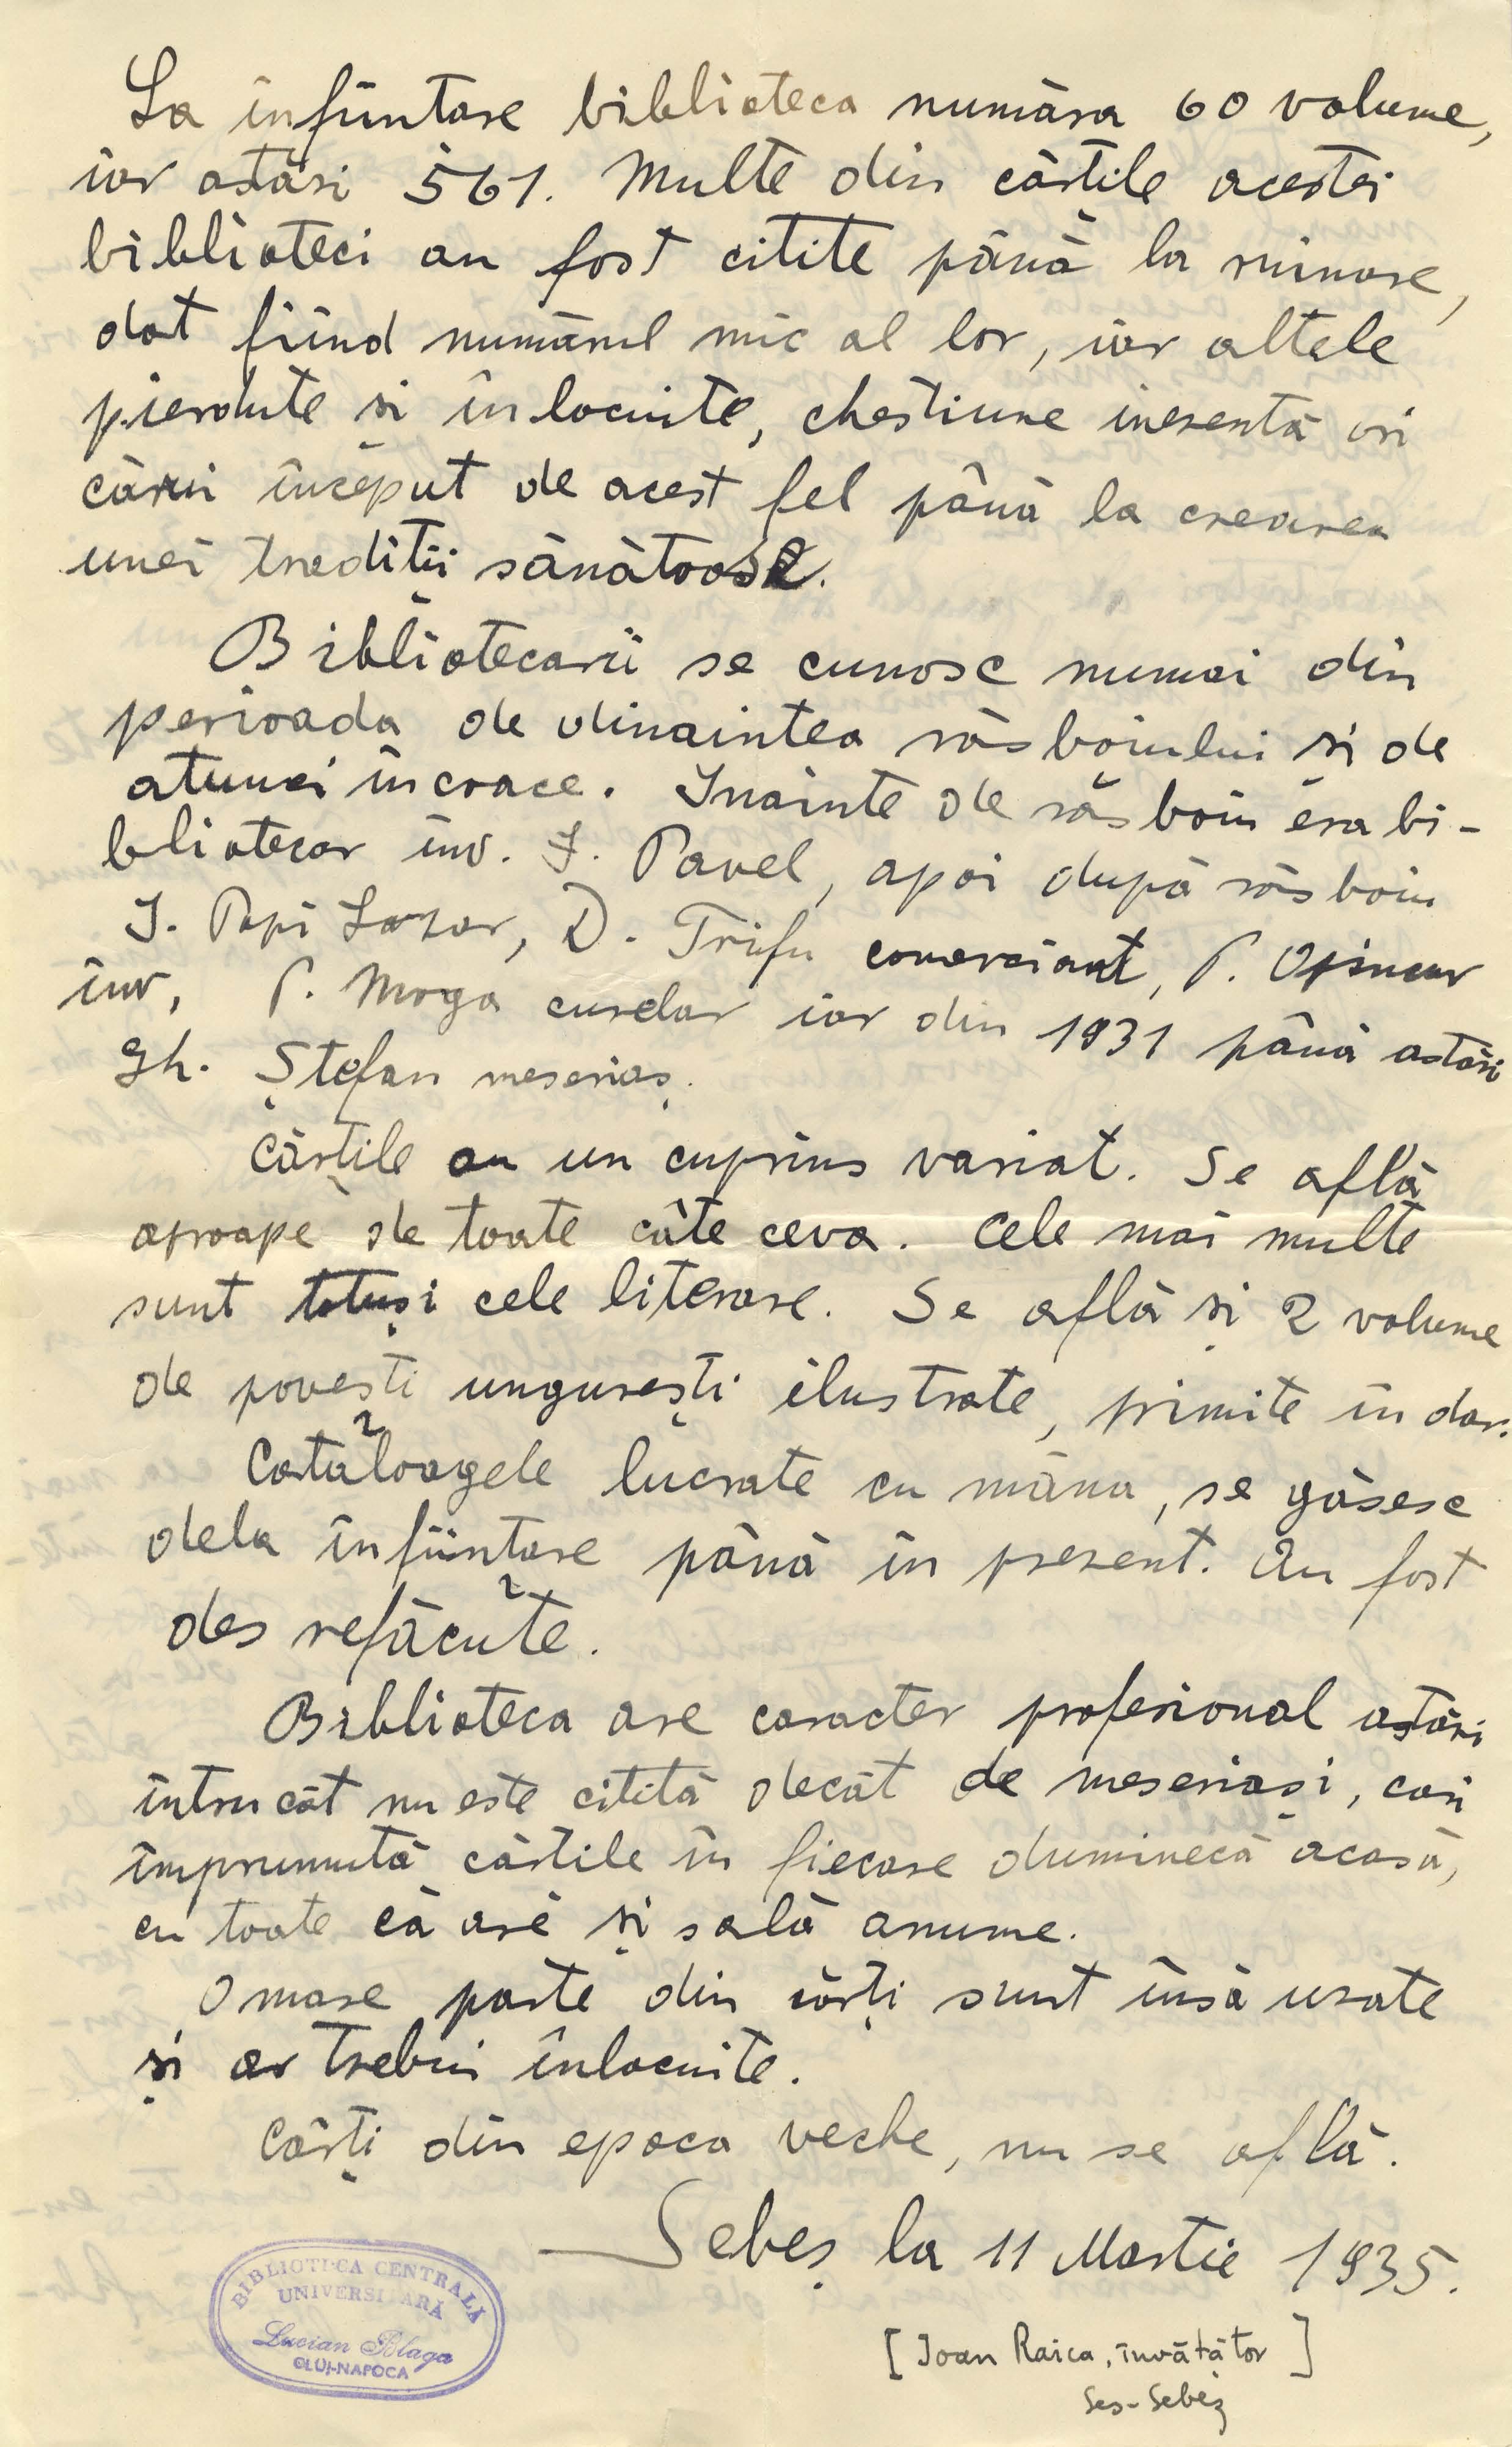 La înfiintare biblioteca număra 60 volume,
iar astăzi 561. Multe din cărțile acestei
biblioteci au fost citite până la ruinare,
dat fiind numărul mic al lor, iar altele
pierdute și înlocuite, chestiune inerentă ori
cărui început de acest fel până la crearea
unei tradiții sănătoase.
Bibliotecarii se cunosc numai din
perioada de dinaintea răsboiului și de
atunci încoace. Inainte de răsboiu era bi-
bliotecar înv. I. Pavel, apoi după răsboiu
I. Papi Lazar, D. Trifu comerciant, P. Opincar
înv, P. Moga curelar iar din 1931 până astăzi
Gh. Ștefan meseriaș.
Cărțile au un cuprins variat. Se află
aproape de toate câte ceva. Cele mai multe
sunt totuși cele literare. Se află și 2 volume
de povești ungurești ilustrate, primite în dar.
Cataloagele lucrate cu mâna, se găsesc
dela înfiintare până în prezent. Au fost
des refăcute.
Biblioteca are caracter profesional astăzi
întru cât nu este citită decât de meseriași, cari
împrumută cărțile în fiecare duminecă acasă,
cu toate că are și sală anume.
O mare parte din cărți sunt însă uzate
și ar trebui înlocuite.
Cărți din epoca veche, nu se află.
Sebeș la 11 Martie 1935.
[Ioan Raica, învățător]
Ses-Sebeș
BIBLIOTECA CENTRALĂ
UNIVERSITARĂ
Lucian Blaga
CLUJ-NAPOCA